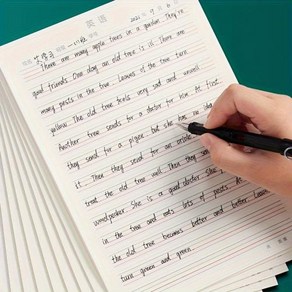 英语
There are many apple trees in a garden. They're
good friends. One day an old tree is ill. There are
many pests in the tree. Leaves of the tree turn
yellow. The old tree feels very sad and unwell.
Another tree sends for a doctor for him. At first,
they send for a pigeon, but she has no idea
it. Then they send for an oriole,
treat the old tree well. Then they sen
woodpecker. She is a good doctor. She
in the tree and eats lots of pests.
the old tree becomes better and better. Leaves
turn green and green.